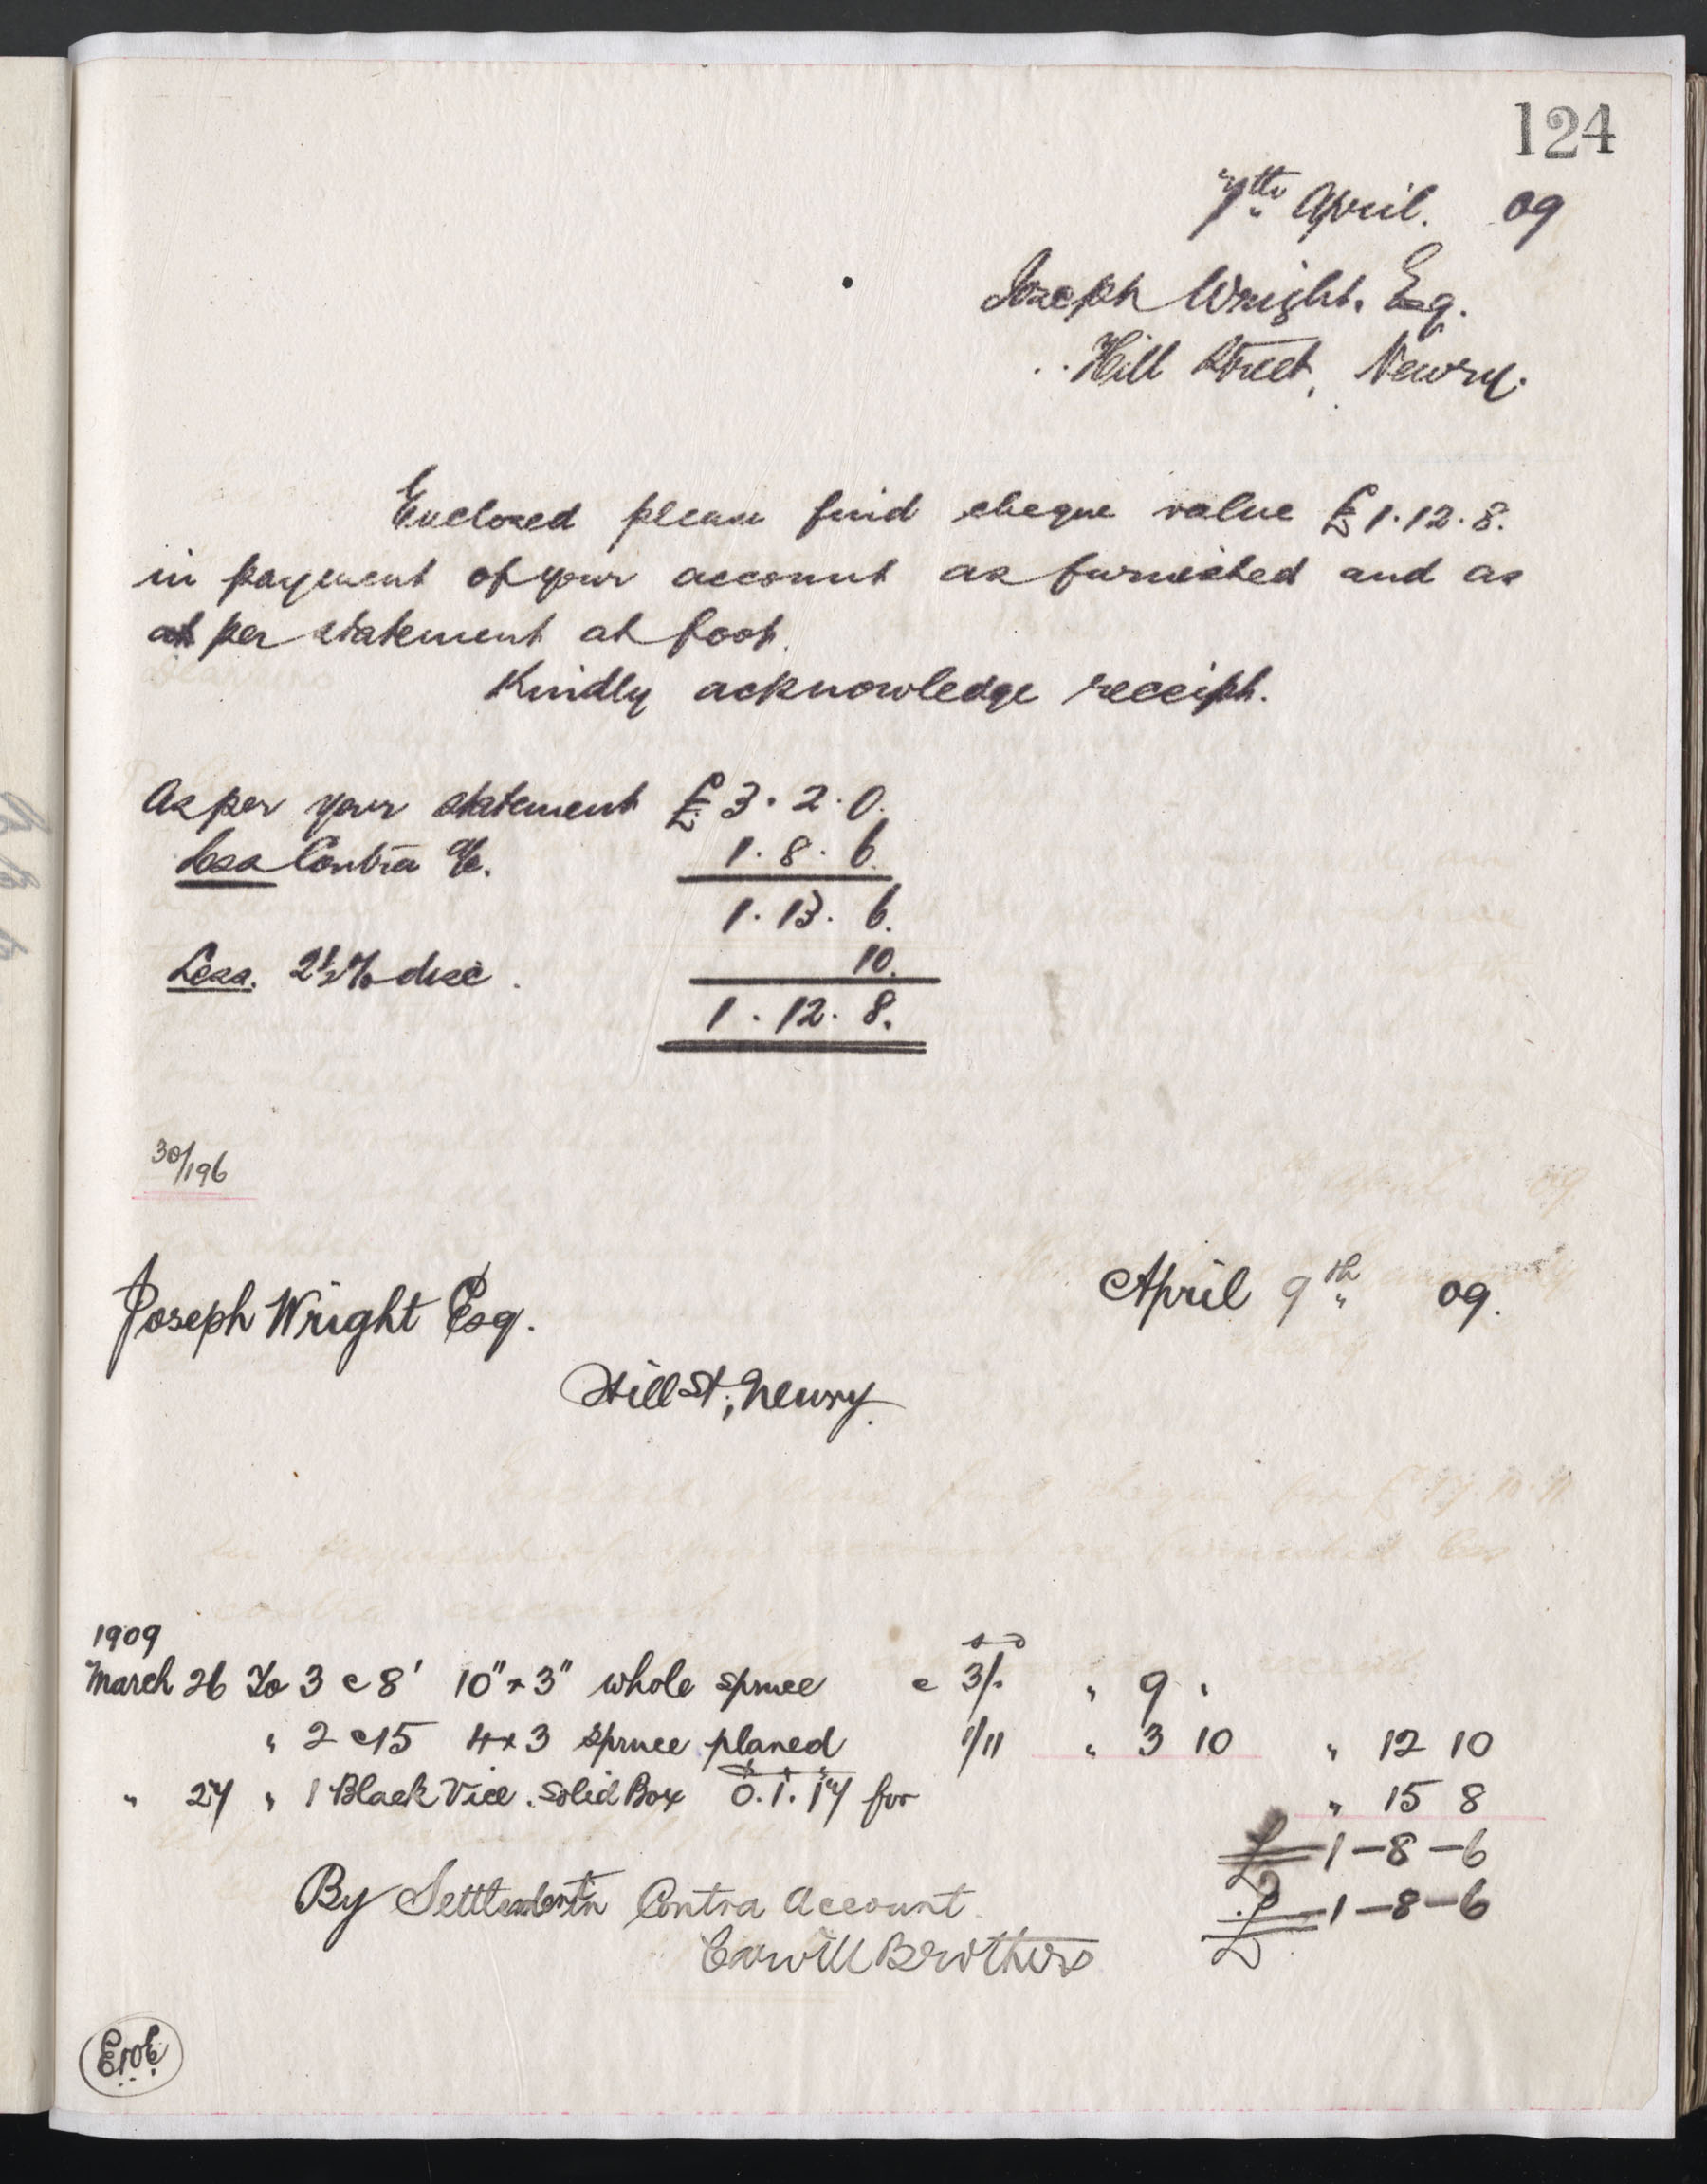 124
7th April. 09
Joseph Wright. Esq.
Hill Street, Newry.
Enclosed please find cheque value £1.12.8.
in payment of your account as furnished and as
per statement at foot.
Kindly acknowledge receipt.
As per your statement £3.2.0.
Less Contra a/c. 1.8.6.
1.13.6.
Less. 2½% disc. 10.
1.12.8.
30/196
Joseph Wright Esq. April 9th 09.
Hill St, Newry.
1909
March 26 To 3 c 8' 10" x 3" whole spruce c 3/. " 9 "
" 2 c 15 4 x 3 spruce planed 1/11 " 3 10 " 12 10
" 27 " 1 Black Vice. Solid Box 0.1.17 for " 15 8
£ 1-8-6
By Settlement in Contra Account £ 1-8-6
Carvill Brothers